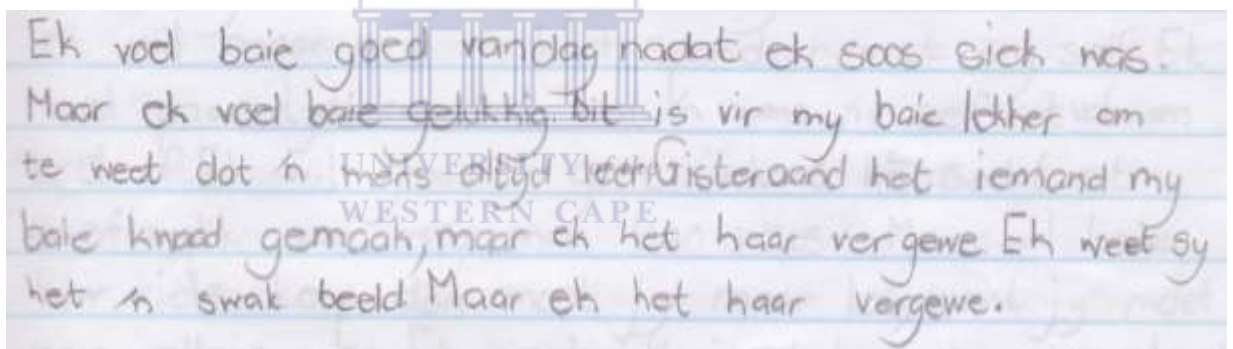 Ek voel baie goed vandag nadat ek soos siek was.
Maar ek voel baie gelukkig. Dit is vir my baie lekker om
te weet dat 'n mens altyd leer Gisteraand het iemand my
baie kwaad gemaak, maar ek het haar vergewe. Ek weet sy
het 'n swak beeld Maar ek het haar vergewe.
UNIVERSITY of the
WESTERN CAPE